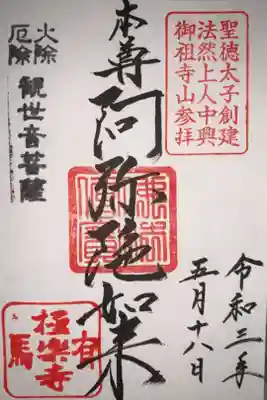 聖徳太子創建
法然上人中興
御祖寺山参拝
令和三年
五月十八日
本尊
阿弥陀如来
火除
厄除
観世音菩薩
有馬
極楽寺